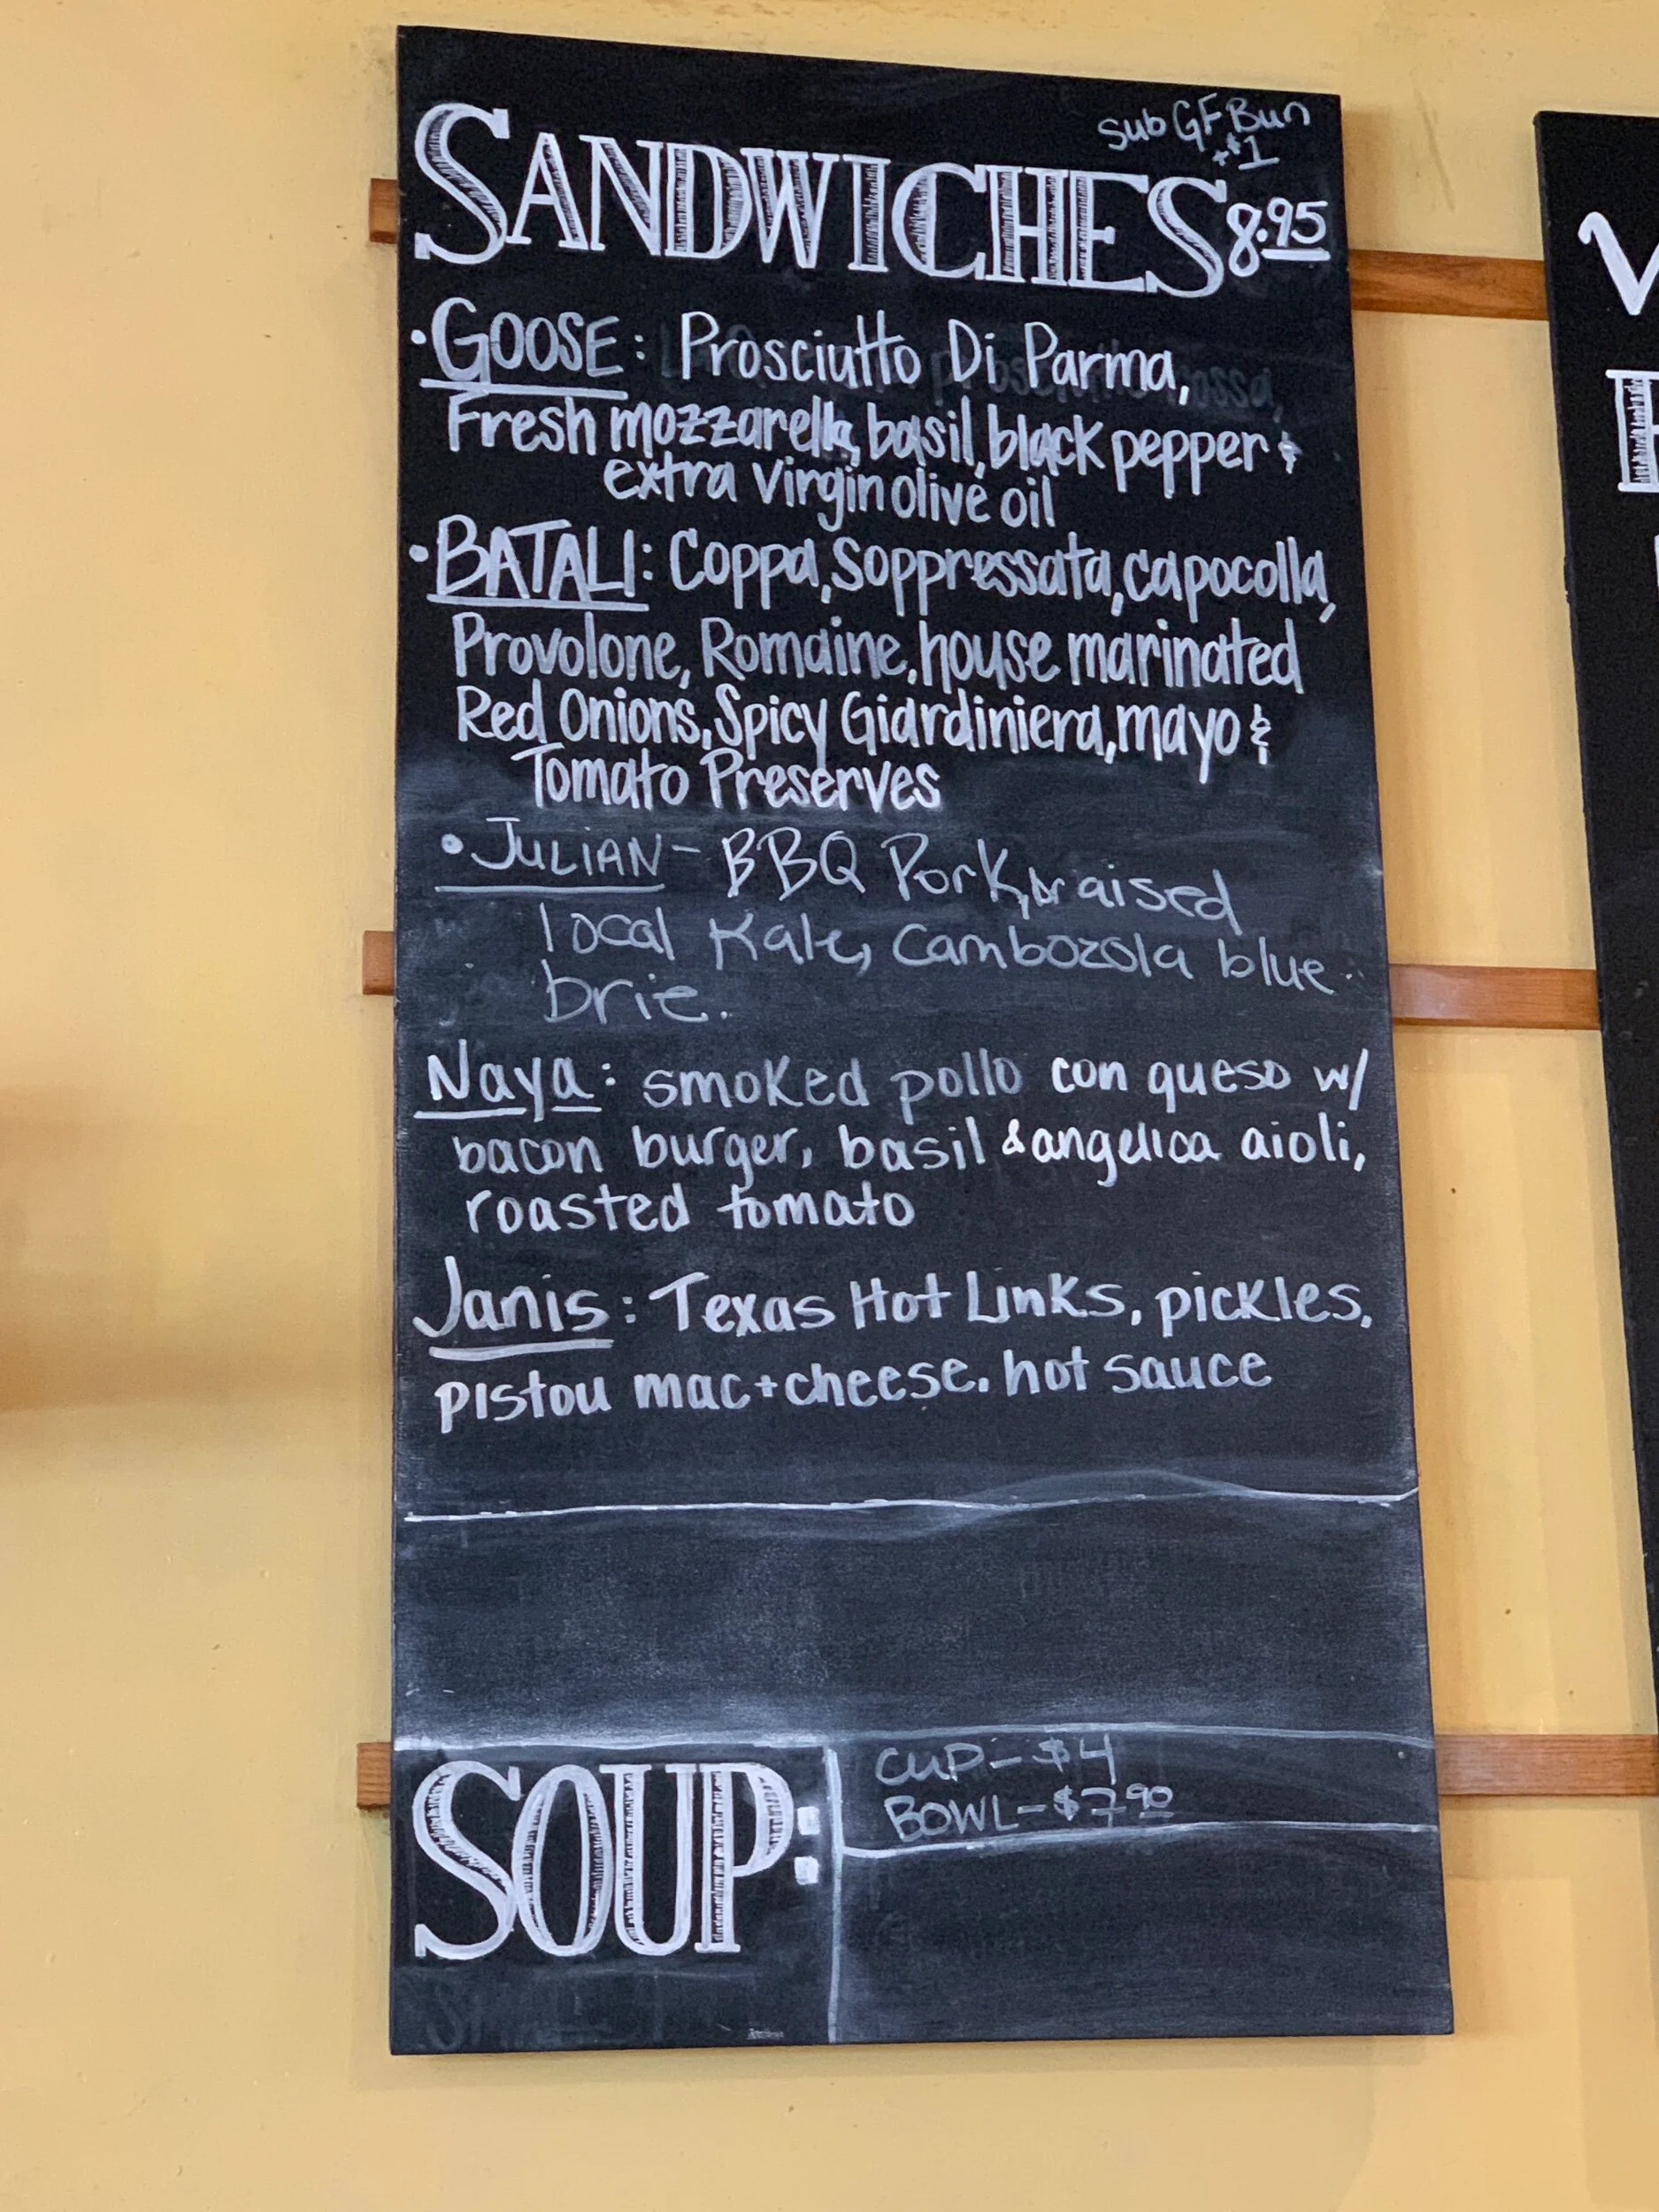 Sub GF Bun
+$1
SANDWICHES 8.95
•GOOSE: Prosciutto Di Parma,
Fresh mozzarella, basil, black pepper &
extra virgin olive oil
•BATALI: Coppa, Soppressata, capocolla,
Provolone, Romaine, house marinated
Red Onions, Spicy Giardiniera, mayo &
Tomato Preserves
•JULIAN- BBQ Pork, braised
local Kale, Cambozola blue
brie.
Naya: smoked pollo con queso w/
bacon burger, basil & angelica aioli,
roasted tomato
Janis: Texas Hot Links, pickles,
pistou mac+cheese, hot sauce
SOUP:
CUP- $4
BOWL- $7.90